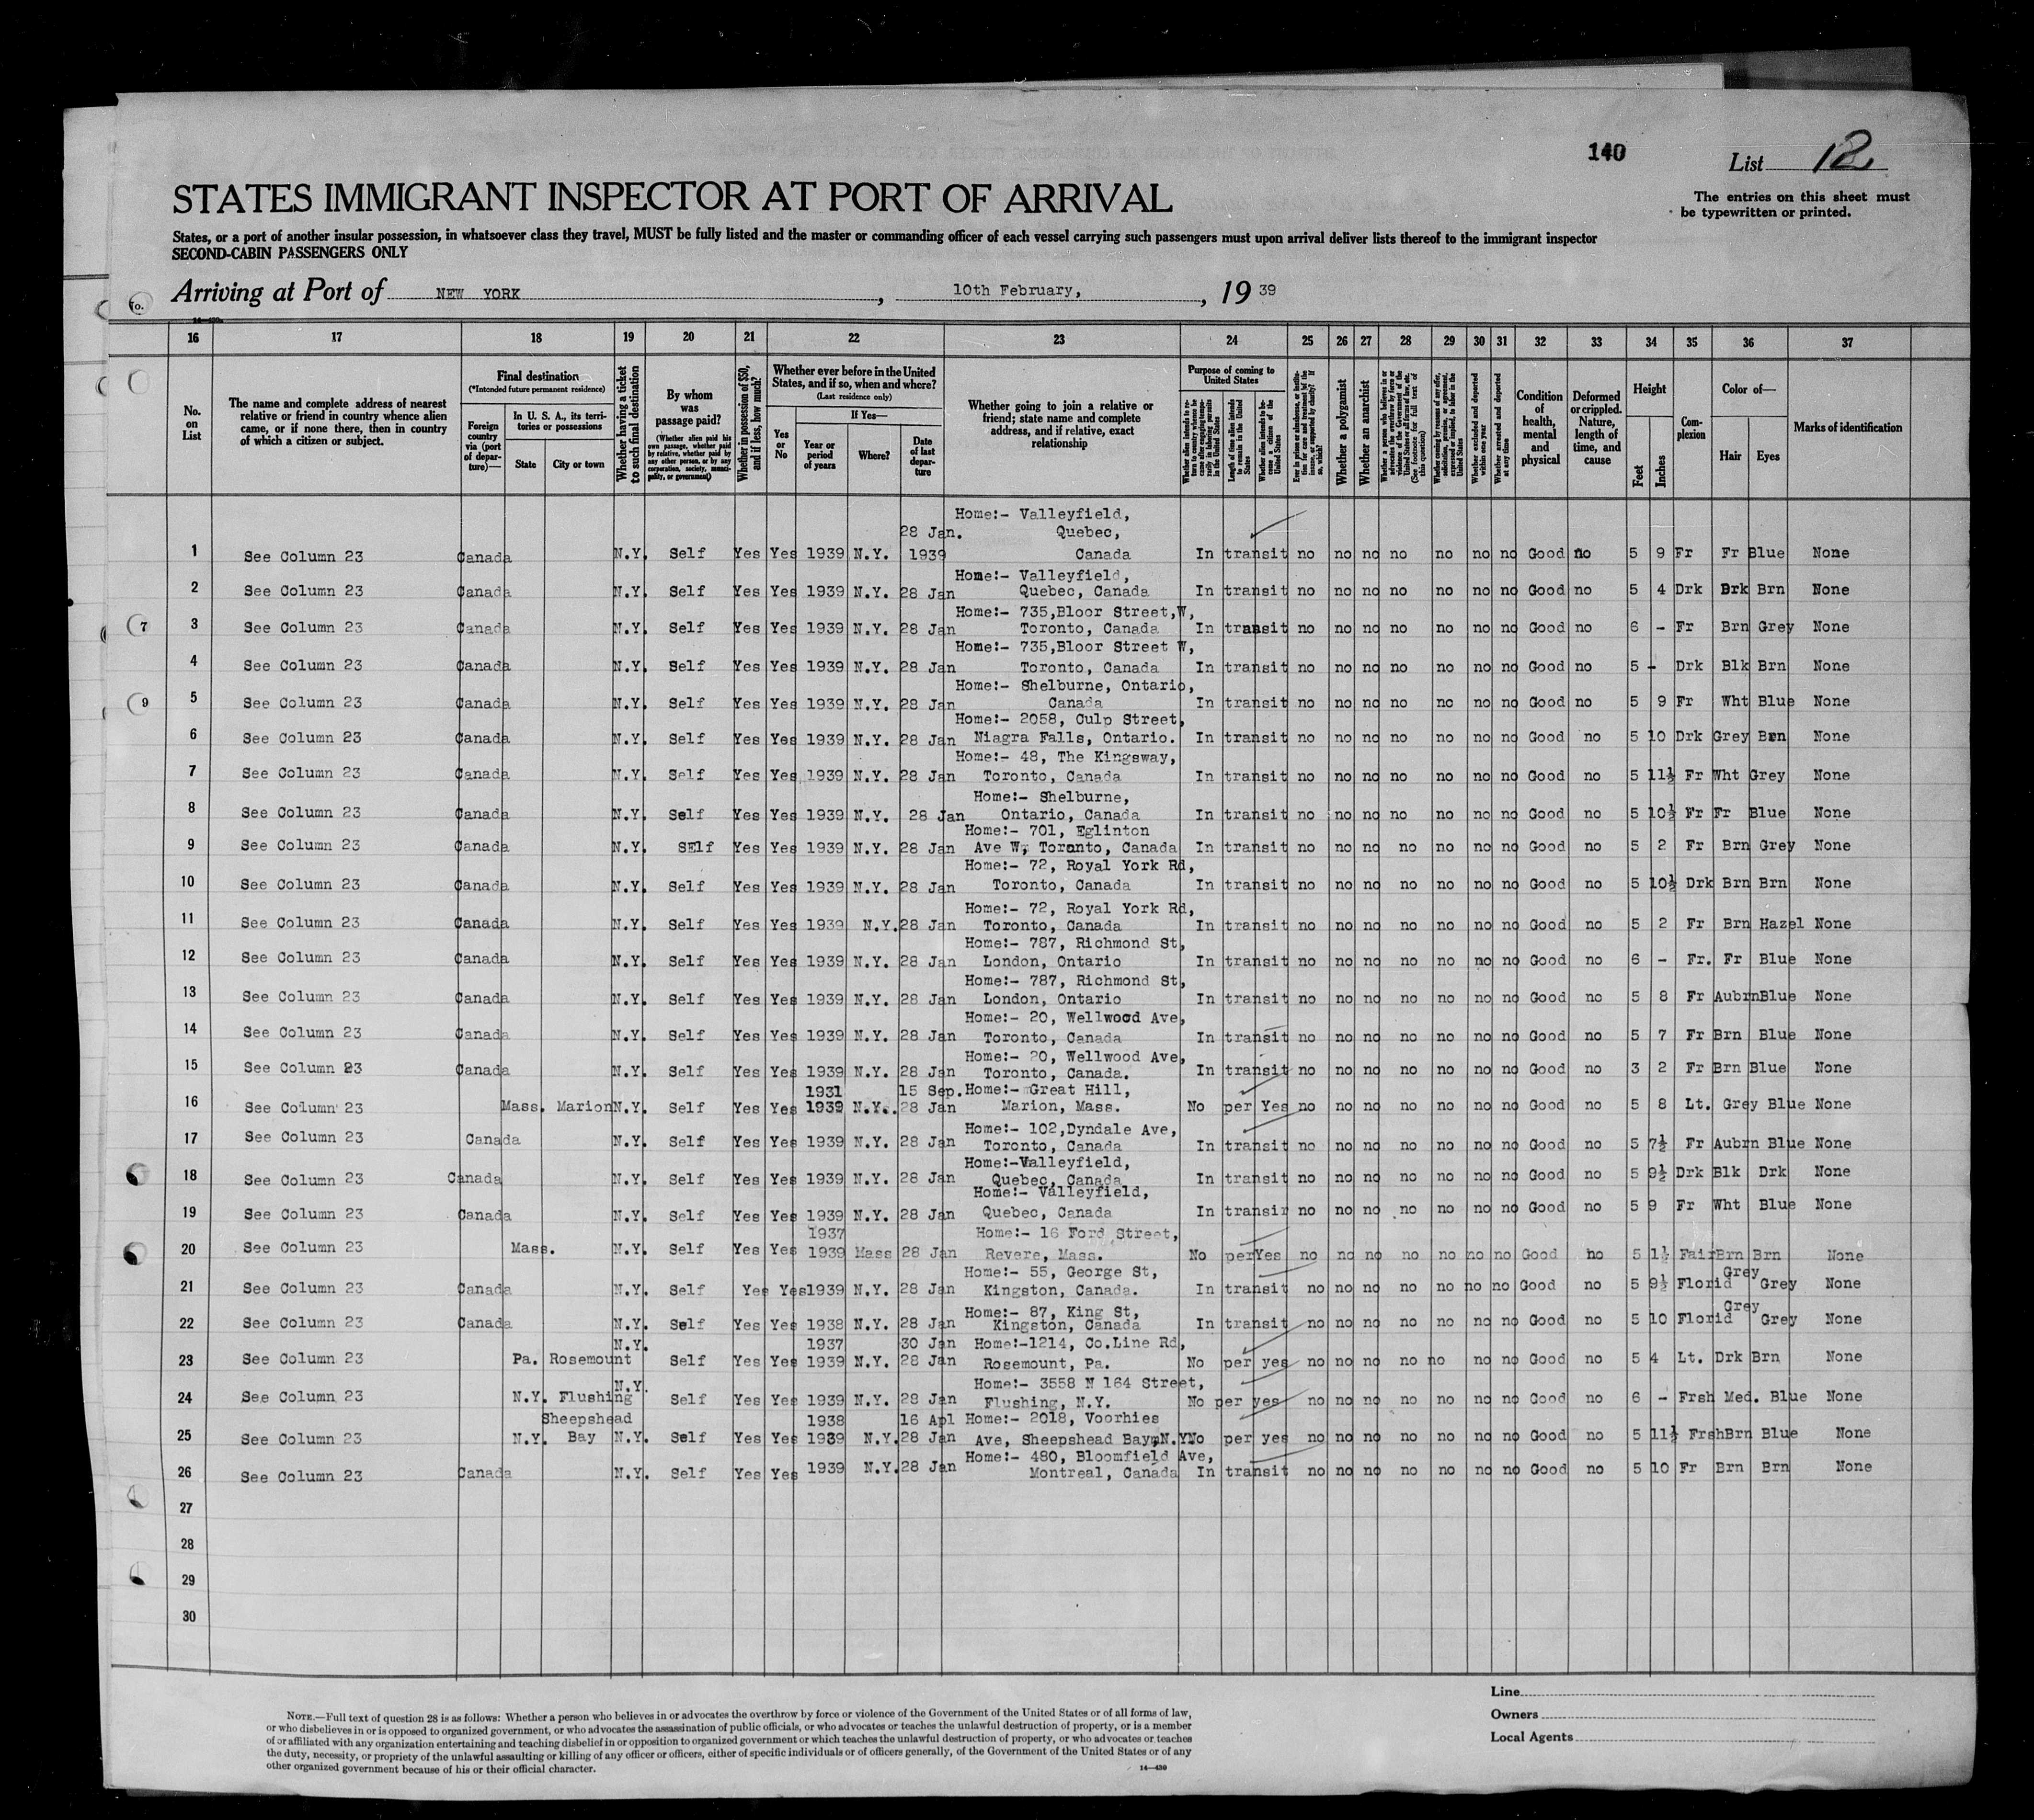 140
List 12
STATES IMMIGRANT INSPECTOR AT PORT OF ARRIVAL
The entries on this sheet must
be typewritten or printed.
States, or a port of another insular possession, in whatsoever class they travel, MUST be fully listed and the master or commanding officer of each vessel carrying such passengers must upon arrival deliver lists thereof to the immigrant inspector
SECOND-CABIN PASSENGERS ONLY
Arriving at Port of NEW YORK, 10th February, 1939
16 17 18 19 20 21 22 23 24 25 26 27 28 29 30 31 32 33 34 35 36 37
No. on List
The name and complete address of nearest relative or friend in country whence alien came, or if none there, then in country of which a citizen or subject.
Final destination
(*Intended future permanent residence)
Foreign country via (port of departure)—
In U. S. A., its territories or possessions
State
City or town
Whether having a ticket to such final destination
By whom was passage paid?
(Whether alien paid his own passage, whether paid by relative, whether paid by any other person, or by any corporation, society, municipality, or government)
Whether in possession of $50, and if less, how much?
Whether ever before in the United States, and if so, when and where?
(Last residence only)
Yes or No
If Yes—
Year or period of years
Where?
Date of last departure
Whether going to join a relative or friend; state name and complete address, and if relative, exact relationship
Purpose of coming to United States
Whether alien intends to return to country whence he came after engaging temporarily in laboring pursuits in the United States
Length of time alien intends to remain in the United States
Whether alien intends to become a citizen of the United States
Ever in prison or almshouse, or institution for care and treatment of the insane, or supported by charity? If so, which?
Whether a polygamist
Whether an anarchist
Whether a person who believes in or advocates the overthrow by force or violence of the Government of the United States or all forms of law, etc. (See footnote for full text of this question)
Whether coming by reason of any offer, solicitation, promise, or agreement, expressed or implied, to labor in the United States
Whether excluded and deported within one year
Whether arrested and deported at any time
Condition of health, mental and physical
Deformed or crippled. Nature, length of time, and cause
Height
Feet
Inches
Complexion
Color of—
Hair
Eyes
Marks of identification
1 See Column 23 Canada N.Y. Self Yes Yes 1939 N.Y. 28 Jan. 1939 Home:- Valleyfield, Quebec, Canada In transit no no no no no no no Good no 5 9 Fr Fr Blue None
2 See Column 23 Canada N.Y. Self Yes Yes 1939 N.Y. 28 Jan Home:- Valleyfield, Quebec, Canada In transit no no no no no no no Good no 5 4 Drk Drk Brn None
3 See Column 23 Canada N.Y. Self Yes Yes 1939 N.Y. 28 Jan Home:- 735,Bloor Street,W, Toronto, Canada In transit no no no no no no no Good no 6 - Fr Brn Grey None
4 See Column 23 Canada N.Y. Self Yes Yes 1939 N.Y. 28 Jan Home:- 735,Bloor Street W, Toronto, Canada In transit no no no no no no no Good no 5 - Drk Blk Brn None
5 See Column 23 Canada N.Y. Self Yes Yes 1939 N.Y. 28 Jan Home:- Shelburne, Ontario, Canada In transit no no no no no no no Good no 5 9 Fr Wht Blue None
6 See Column 23 Canada N.Y. Self Yes Yes 1939 N.Y. 28 Jan Home:- 2058, Culp Street, Niagra Falls, Ontario. In transit no no no no no no no Good no 5 10 Drk Grey Brn None
7 See Column 23 Canada N.Y. Self Yes Yes 1939 N.Y. 28 Jan Home:- 48, The Kingsway, Toronto, Canada In transit no no no no no no no Good no 5 11½ Fr Wht Grey None
8 See Column 23 Canada N.Y. Self Yes Yes 1939 N.Y. 28 Jan Home:- Shelburne, Ontario, Canada In transit no no no no no no no Good no 5 10½ Fr Fr Blue None
9 See Column 23 Canada N.Y. SElf Yes Yes 1939 N.Y. 28 Jan Home:- 701, Eglinton Ave W, Toronto, Canada In transit no no no no no no no Good no 5 2 Fr Brn Grey None
10 See Column 23 Canada N.Y. Self Yes Yes 1939 N.Y. 28 Jan Home:- 72, Royal York Rd, Toronto, Canada In transit no no no no no no no Good no 5 10½ Drk Brn Brn None
11 See Column 23 Canada N.Y. Self Yes Yes 1939 N.Y. 28 Jan Home:- 72, Royal York Rd, Toronto, Canada In transit no no no no no no no Good no 5 2 Fr Brn Hazel None
12 See Column 23 Canada N.Y. Self Yes Yes 1939 N.Y. 28 Jan Home:- 787, Richmond St, London, Ontario In transit no no no no no no no Good no 6 - Fr. Fr Blue None
13 See Column 23 Canada N.Y. Self Yes Yes 1939 N.Y. 28 Jan Home:- 787, Richmond St, London, Ontario In transit no no no no no no no Good no 5 8 Fr Aubrn Blue None
14 See Column 23 Canada N.Y. Self Yes Yes 1939 N.Y. 28 Jan Home:- 20, Wellwood Ave, Toronto, Canada In transit no no no no no no no Good no 5 7 Fr Brn Blue None
15 See Column 23 Canada N.Y. Self Yes Yes 1939 N.Y. 28 Jan Home:- 20, Wellwood Ave, Toronto, Canada. In transit no no no no no no no Good no 3 2 Fr Brn Blue None
16 See Column 23 Mass. Marion N.Y. Self Yes Yes 1931 1939 N.Y. 15 Sep. 28 Jan Home:- Great Hill, Marion, Mass. No per Yes no no no no no no no Good no 5 8 Lt. Grey Blue None
17 See Column 23 Canada N.Y. Self Yes Yes 1939 N.Y. 28 Jan Home:- 102,Dyndale Ave, Toronto, Canada In transit no no no no no no no Good no 5 7½ Fr Aubrn Blue None
18 See Column 23 Canada N.Y. Self Yes Yes 1939 N.Y. 28 Jan Home:-Valleyfield, Quebec, Canada In transit no no no no no no no Good no 5 9½ Drk Blk Drk None
19 See Column 23 Canada N.Y. Self Yes Yes 1939 N.Y. 28 Jan Home:- Valleyfield, Quebec, Canada In transir no no no no no no no Good no 5 9 Fr Wht Blue None
20 See Column 23 Mass. N.Y. Self Yes Yes 1937 1939 Mass 28 Jan Home:- 16 Ford Street, Revere, Mass. No per Yes no no no no no no no Good no 5 1½ Fair Brn Brn None
21 See Column 23 Canada N.Y. Self Yes Yes 1939 N.Y. 28 Jan Home:- 55, George St, Kingston, Canada. In transit no no no no no no no Good no 5 9½ Florid Grey Grey None
22 See Column 23 Canada N.Y. Self Yes Yes 1938 N.Y. 28 Jan Home:- 87, King St, Kingston, Canada In transit no no no no no no no Good no 5 10 Florid Grey Grey None
23 See Column 23 Pa. Rosemount N.Y. Self Yes Yes 1937 1939 N.Y. 30 Jan 28 Jan Home:-1214, Co.Line Rd, Rosemount, Pa. No per yes no no no no no no no Good no 5 4 Lt. Drk Brn None
24 See Column 23 N.Y. Flushing N.Y. Self Yes Yes 1939 N.Y. 28 Jan Home:- 3558 N 164 Street, Flushing, N.Y. No per yes no no no no no no no Good no 6 - Frsh Med. Blue None
25 See Column 23 N.Y. Sheepshead Bay N.Y. Self Yes Yes 1938 1939 N.Y. 16 Apl 28 Jan Home:- 2018, Voorhies Ave, Sheepshead Bay, N.Y. No per yes no no no no no no no Good no 5 11½ Frsh Brn Blue None
26 See Column 23 Canada N.Y. Self Yes Yes 1939 N.Y. 28 Jan Home:- 480, Bloomfield Ave, Montreal, Canada In transit no no no no no no no Good no 5 10 Fr Brn Brn None
27
28
29
30
Line
Owners
Local Agents
NOTE.—Full text of question 28 is as follows: Whether a person who believes in or advocates the overthrow by force or violence of the Government of the United States or of all forms of law,
or who disbelieves in or is opposed to organized government, or who advocates the assassination of public officials, or who advocates or teaches the unlawful destruction of property, or is a member
of or affiliated with any organization entertaining and teaching disbelief in or opposition to organized government or which teaches the unlawful destruction of property, or who advocates or teaches
the duty, necessity, or propriety of the unlawful assaulting or killing of any officer or officers, either of specific individuals or of officers generally, of the Government of the United States or of any
other organized government because of his or their official character.
14—430